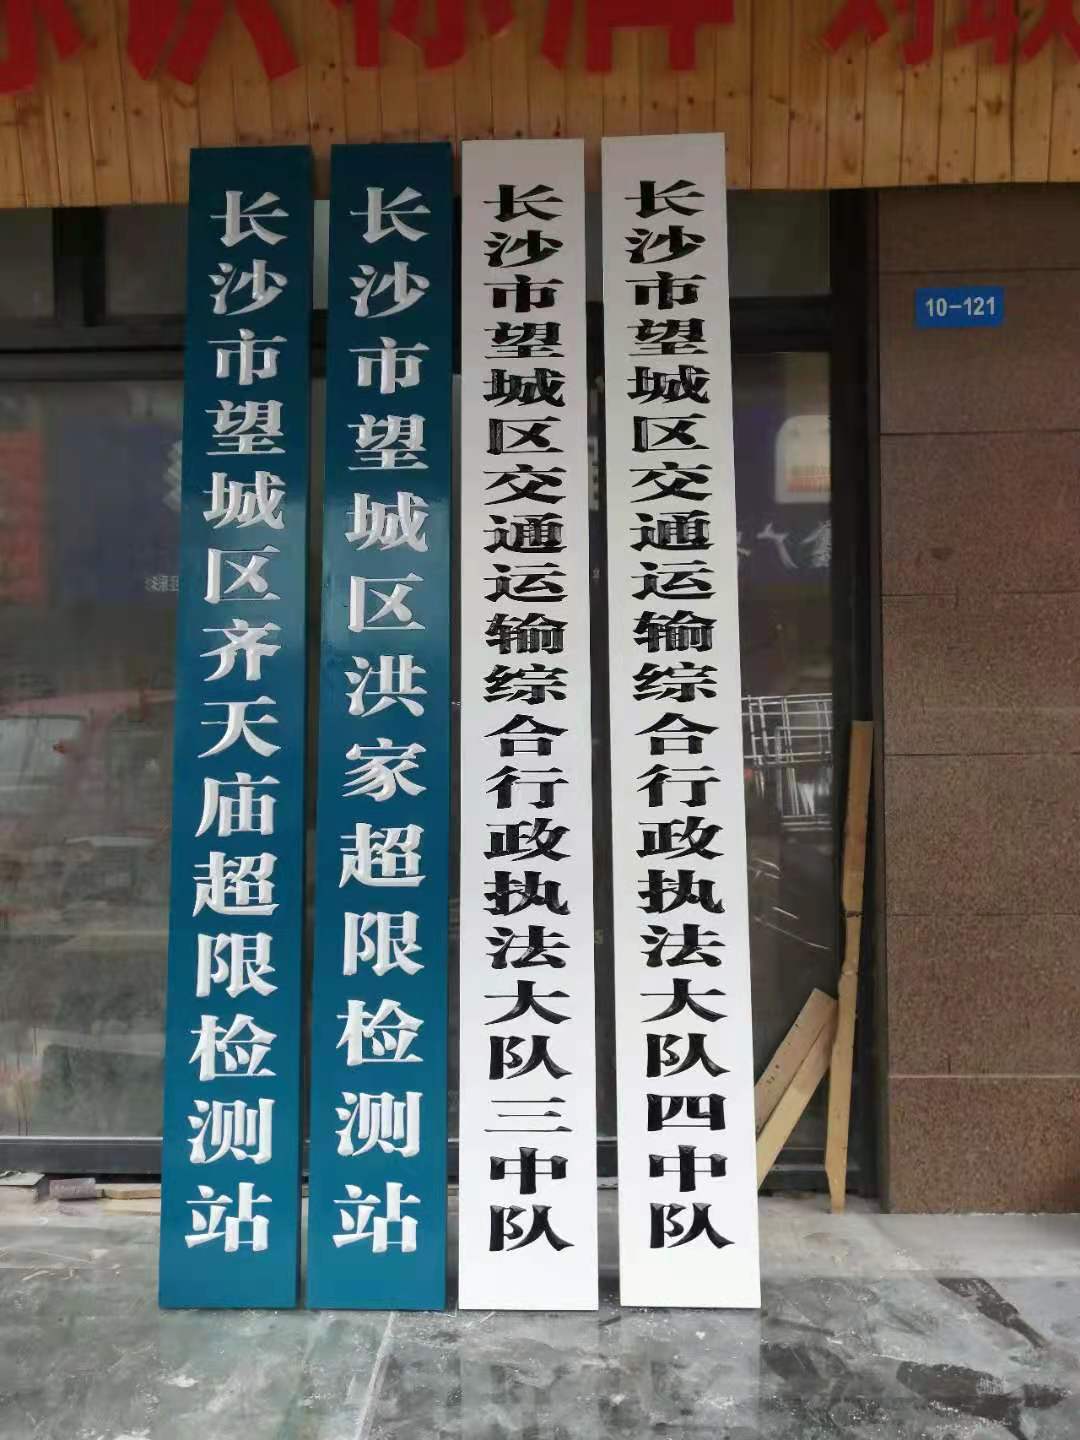 标牌 对联
长沙市望城区齐天庙超限检测站
长沙市望城区洪家超限检测站
长沙市望城区交通运输综合行政执法大队三中队
长沙市望城区交通运输综合行政执法大队四中队
10-121